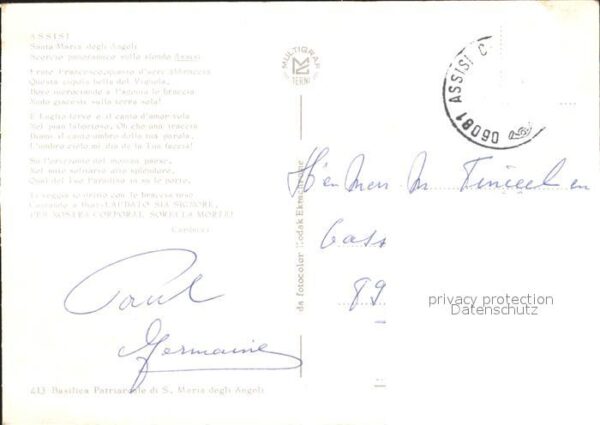 ASSISI
Santa Maria degli Angeli
Scorcio panoramico sullo sfondo Assisi
Frate Francesco, quanto d'aere abbraccia
Questa cupola bella del Vignola,
Dove incrociando a l'agonia le braccia
Nudo giacesti sulla terra sola!
E Luglio ferve e il canto d'amor vola
Nel pian laborioso. Oh che una traccia
Diami il canto umbro della tua parola,
L'umbro cielo mi dia de la tua faccia!
Su l'orizzonte del montan paese,
Nel mite solitario alto splendore,
Qual del tuo Paradiso in su le porte,
Ti veggia dritto con le braccia tese
Cantando a Dio: LAUDATO SIA SIGNORE,
PER NOSTRA CORPORAL SORELLA MORTE!
Carducci
MULTIGRAF
TERNI
06081 ASSISI
da fotocolor Kodak Ektachrome
89
privacy protection
Datenschutz
Paul
Germaine
413 Basilica Patriarcale di S. Maria degli Angeli